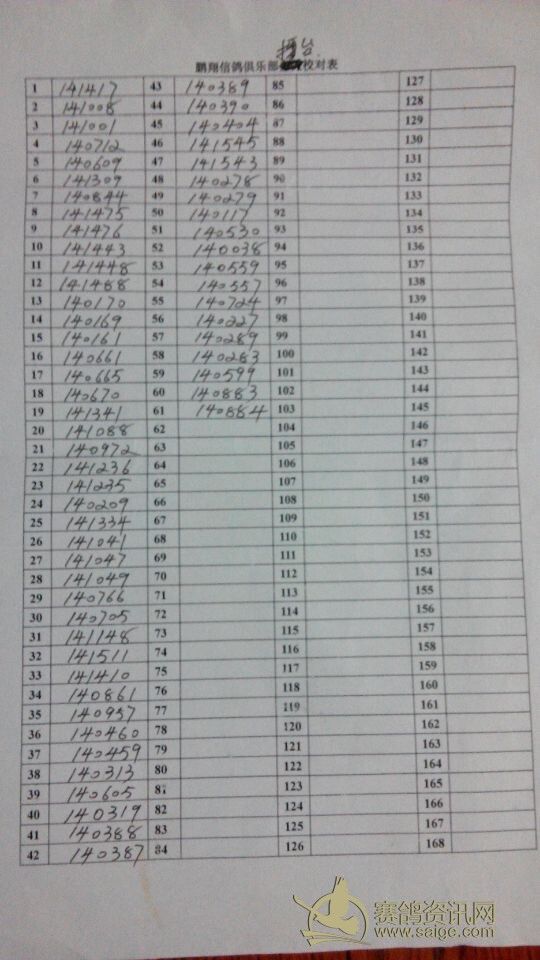 擂台
鹏翔信鸽俱乐部校对表
1 141417 43 140389 85 127
2 141008 44 140390 86 128
3 141001 45 140404 87 129
4 140712 46 141545 88 130
5 140609 47 141543 89 131
6 141309 48 140278 90 132
7 140844 49 140279 91 133
8 141475 50 140117 92 134
9 141476 51 140530 93 135
10 141443 52 140038 94 136
11 141448 53 140559 95 137
12 141488 54 140557 96 138
13 140170 55 140724 97 139
14 140169 56 140227 98 140
15 140161 57 140289 99 141
16 140661 58 140283 100 142
17 140665 59 140599 101 143
18 140670 60 140883 102 144
19 141341 61 140884 103 145
20 141088 62 104 146
21 140972 63 105 147
22 141236 64 106 148
23 141235 65 107 149
24 140209 66 108 150
25 141334 67 109 151
26 141041 68 110 152
27 141047 69 111 153
28 141049 70 112 154
29 140766 71 113 155
30 140705 72 114 156
31 141148 73 115 157
32 141511 74 116 158
33 141410 75 117 159
34 140861 76 118 160
35 140957 77 119 161
36 140460 78 120 162
37 140459 79 121 163
38 140313 80 122 164
39 140605 81 123 165
40 140319 82 124 166
41 140388 83 125 167
42 140387 84 126 168
赛鸽资讯网
www.saige.com